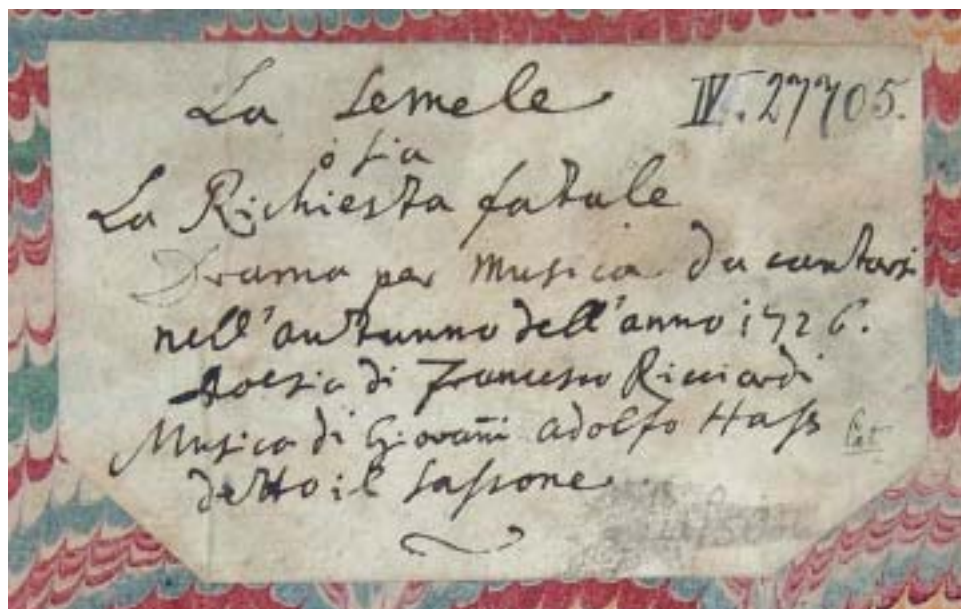 La Semele
IV. 27705.
ò sia
La Richiesta fatale
Drama per Musica da cantarsi
nell'autunno dell'anno 1726.
Poesia di Francesco Ricciardi
Musica di Giovañi Adolfo Hass
detto il Sassone